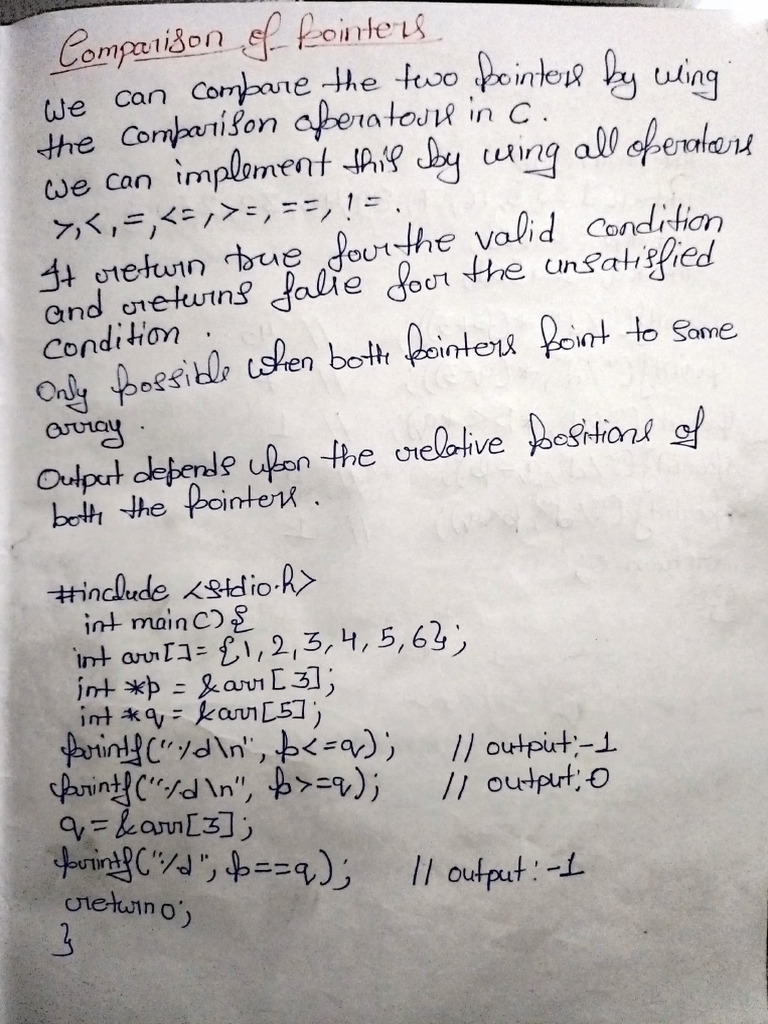 Comparison of Pointers
We can compare the two pointers by using
the comparison operators in C.
We can implement this by using all operators
>,<,=,<=,>=,==,!=.
It return true for the valid condition
and returns false for the unsatisfied
condition.
Only possible when both pointers point to same
array.
Output depends upon the relative positions of
both the pointers.
#include <stdio.h>
int main() {
int arr[]= {1,2,3,4,5,6};
int *p = &arr[3];
int *q = &arr[5];
printf("%d\n", p<=q);    // output:-1
printf("%d\n", p>=q);    // output:0
q=&arr[3];
printf("%d", p==q);    // output:-1
return 0;
}